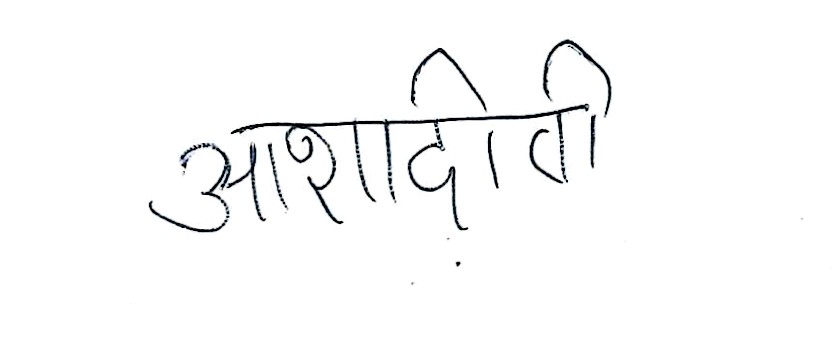 आशादीती